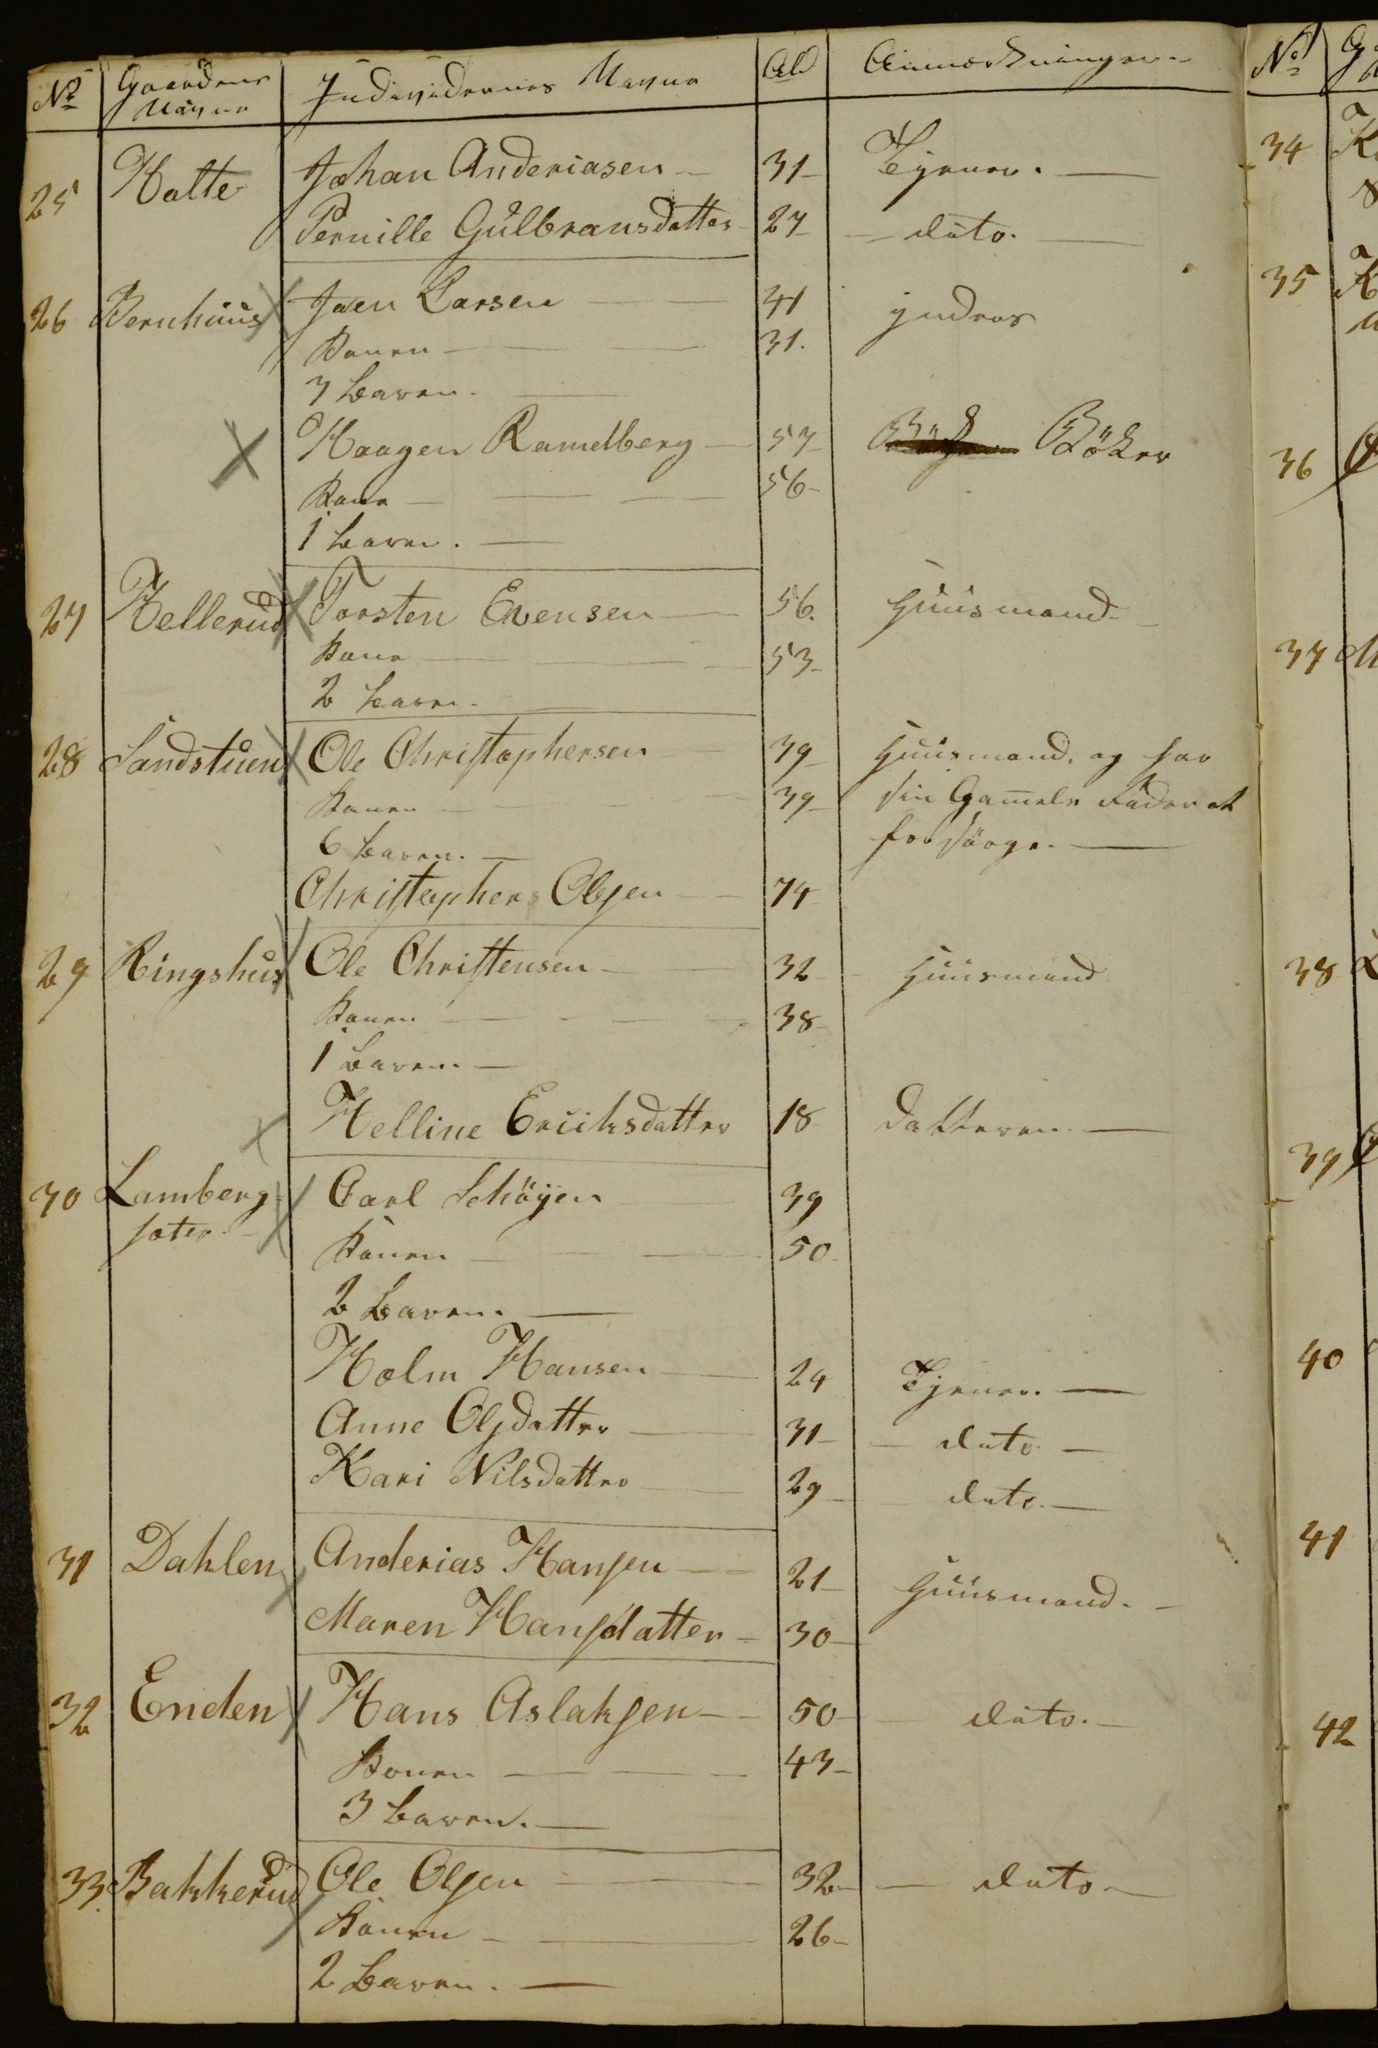 No Gaardens Navne Individernes Navne Ald Anmærkninger
25 Holte Johan Anderiasen 31 Tjener.
Pernille Gulbransdatter 27 dito.
26 Bernhuus Joen Larsen 41 inderst
Konen 31.
3 Børn.
Haagen Ramelberg 57 Bøker
Kone 56
1 Børn.
27 Hellerud Torsten Evensen 56. Huusmand
Kone 53
2 børn.
28 Sandstuen Ole Christophersen 39 Huusmand, og har
Konen 39 sin Gamele Fader at
6 børn. forsørge.
Christopher Olsen 74
29 Ringshus Ole Christensen 32 Huusmand
Konen 38
1 Børn.
Helline Eriksdatter 18 datteren
30 Lamberg- Carl Schöyen 39
sæter Konen 50
2 Børn.
Holm Hansen 24 Tjener.
Anne Olsdatter 31 dito
Kari Nilsdatter 29 dito.
31 Dahlen Anderias Hansen 21 Huusmand.
Maren Hansdatter 30
32 Enden Hans Aslaksen 50 dito.
Konen 43
3 børn.
33. Bakkerud Ole Olsen 32 dito
Konen 26
2 Børn.
No
34
35
36
37
38
39
40
41
42